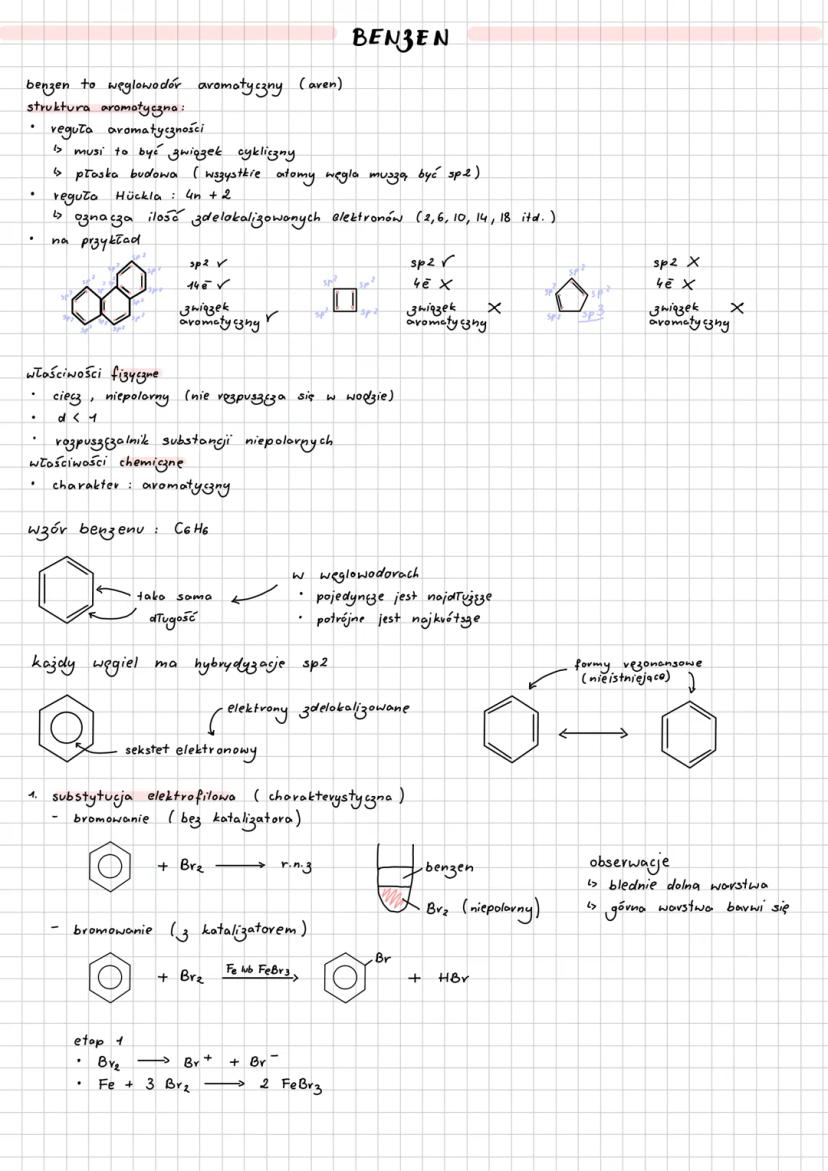 BENZEN
benzen to węglowodór aromatyczny (aren)
struktura aromatyczna:
• reguła aromatyczności
↳ musi to być związek cykliczny
↳ płaska budowa (wszystkie atomy węgla muszą być sp2)
• reguła Hückla : 4n + 2
↳ oznacza ilość zdelokalizowanych elektronów (2, 6, 10, 14, 18 itd.)
• na przykład
sp2 ✓
14ē ✓
związek aromatyczny ✓
sp2 sp2 sp2 sp2
sp2 ✓
4ē X
związek aromatyczny X
sp2 sp2 sp2 sp3
sp2 X
4ē X
związek aromatyczny X
właściwości fizyczne
• ciecz, niepolarny (nie rozpuszcza się w wodzie)
• d < 1
• rozpuszczalnik substancji niepolarnych
właściwości chemiczne
• charakter : aromatyczny
wzór benzenu : C6H6
taka sama
długość
w węglowodorach
• pojedyncze jest najdłuższe
• potrójne jest najkrótsze
każdy węgiel ma hybrydyzacje sp2
elektrony zdelokalizowane
sekstet elektronowy
formy rezonansowe
(nieistniejące)
1. substytucja elektrofilowa (charakterystyczna)
- bromowanie (bez katalizatora)
+ Br2 → r.n.z
benzen
Br2 (niepolarny)
obserwacje
↳ blednie dolna warstwa
↳ górna warstwa barwi się
- bromowanie (z katalizatorem)
+ Br2 Fe lub FeBr3 → Br + HBr
etap 1
• Br2 → Br+ + Br-
• Fe + 3 Br2 → 2 FeBr3